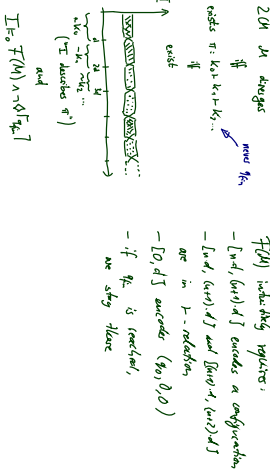 2CM M diverges
iff
exists π: K₀ ⊢ K₁ ⊢ K₂ ...
never q_fin
iff
exist
I
d 2d 3d
~K₀ ~K₁ ~K₂ ...
("I describes π")
and
I ⊨₀ F(M) ∧ ¬◇⌈q_fin⌉
F(M) intuitively requires:
- [n·d, (n+1)·d] encodes a configuration
- [n·d, (n+1)·d] and [(n+1)·d, (n+2)·d]
are in ⊢-relation
- [0, d] encodes (q₀, 0, 0)
- if q_fin is reached,
we stay there